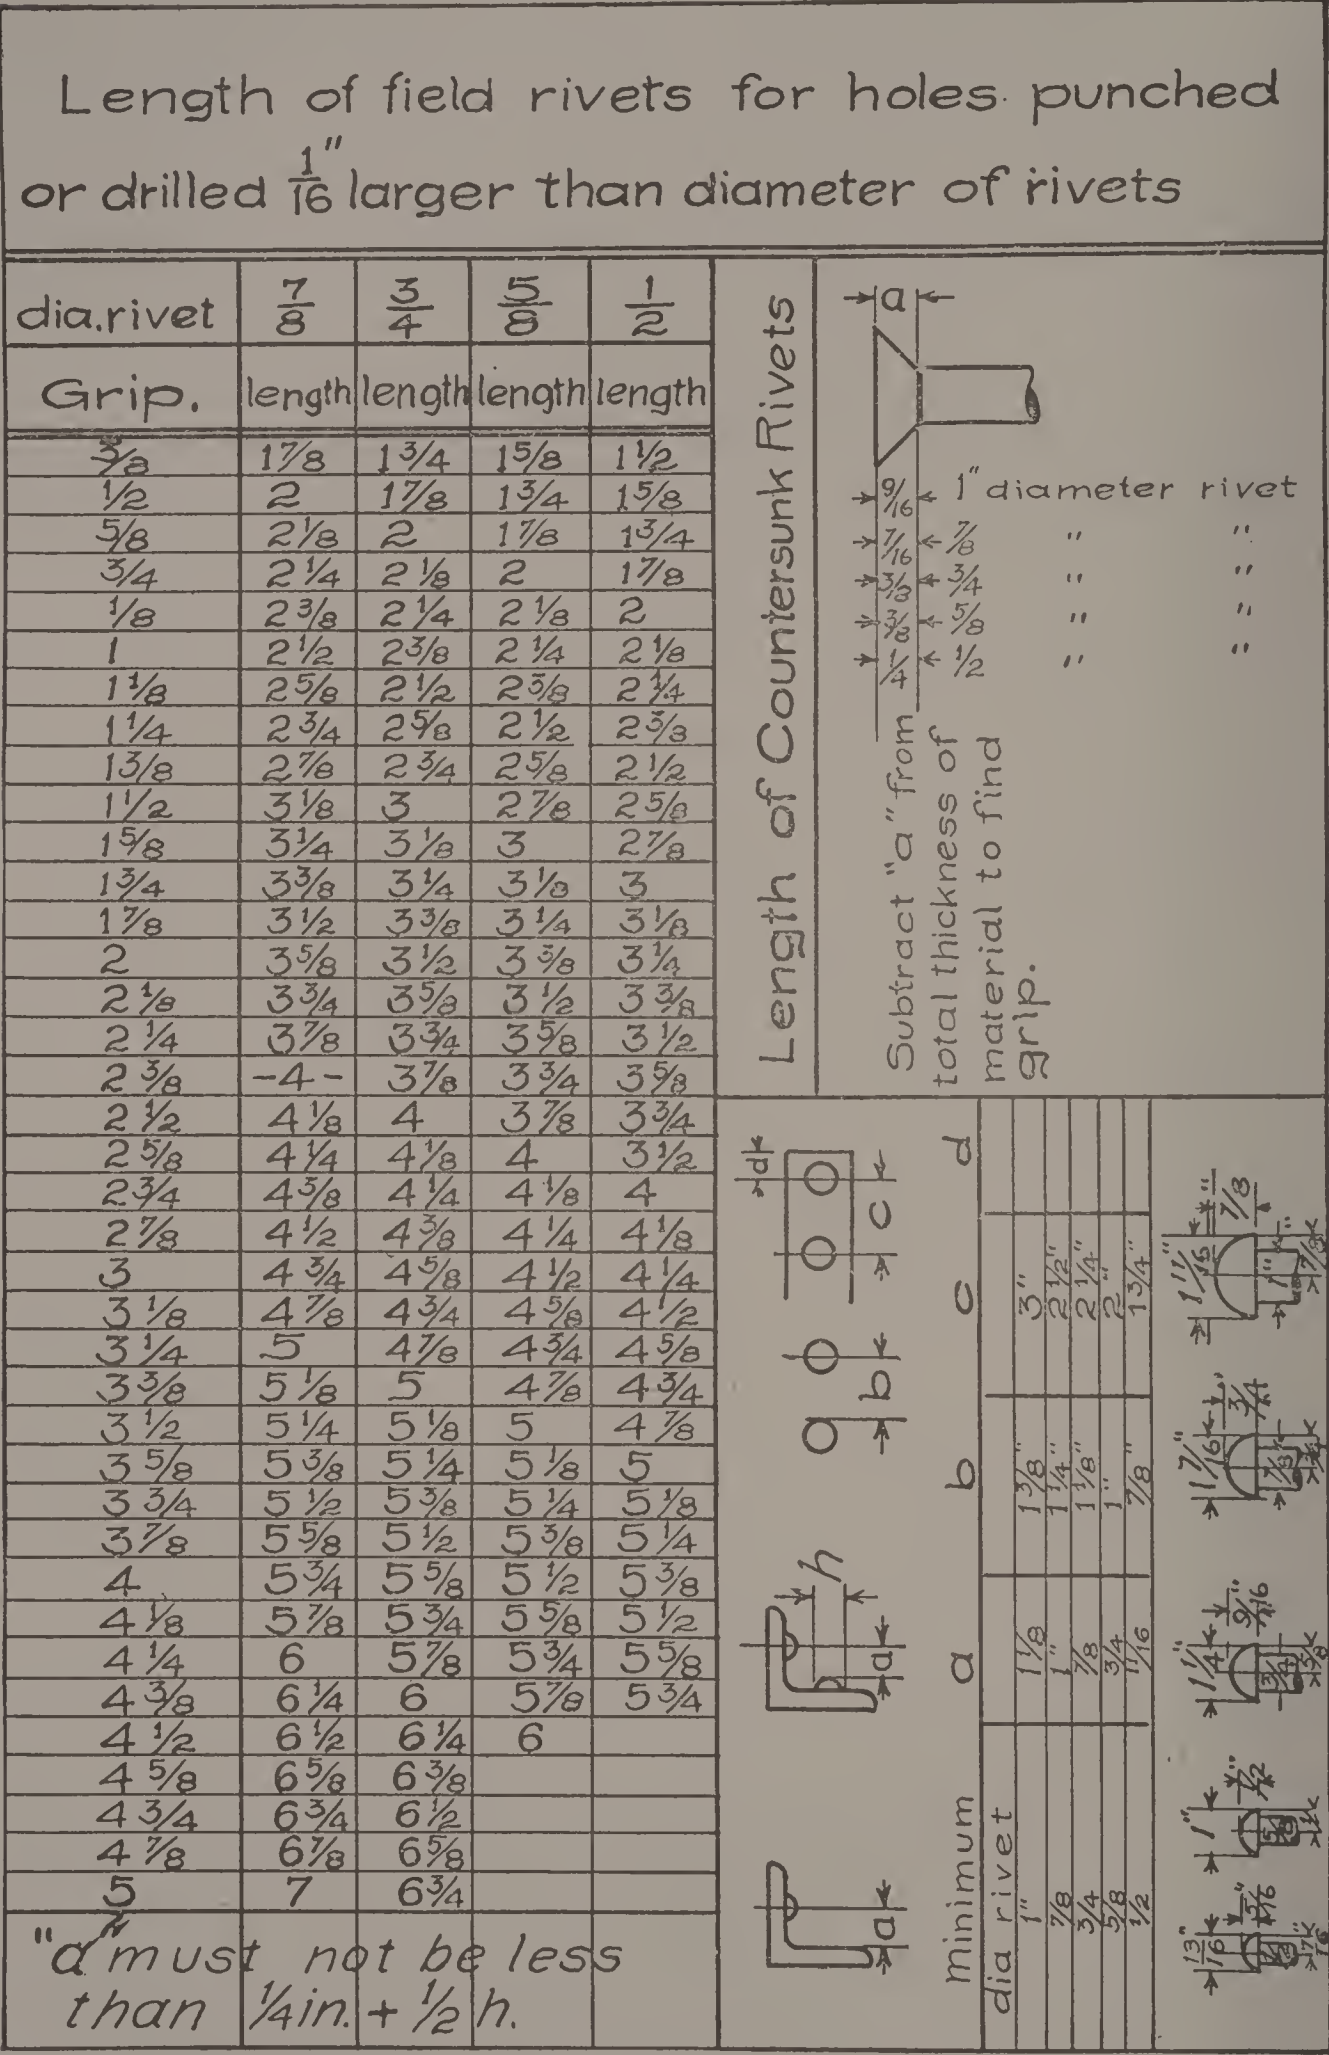 Length of field rivets for holes punched
or drilled 1/16" larger than diameter of rivets
dia.rivet 7/8 3/4 5/8 1/2
Grip. length length length length
3/8 1 7/8 1 3/4 1 5/8 1 1/2
1/2 2 1 7/8 1 3/4 1 5/8
5/8 2 1/8 2 1 7/8 1 3/4
3/4 2 1/4 2 1/8 2 1 7/8
1/8 2 3/8 2 1/4 2 1/8 2
1 2 1/2 2 3/8 2 1/4 2 1/8
1 1/8 2 5/8 2 1/2 2 3/8 2 1/4
1 1/4 2 3/4 2 5/8 2 1/2 2 3/8
1 3/8 2 7/8 2 3/4 2 5/8 2 1/2
1 1/2 3 1/8 3 2 7/8 2 5/8
1 5/8 3 1/4 3 1/8 3 2 7/8
1 3/4 3 3/8 3 1/4 3 1/8 3
1 7/8 3 1/2 3 3/8 3 1/4 3 1/8
2 3 5/8 3 1/2 3 3/8 3 1/4
2 1/8 3 3/4 3 5/8 3 1/2 3 3/8
2 1/4 3 7/8 3 3/4 3 5/8 3 1/2
2 3/8 -4- 3 7/8 3 3/4 3 5/8
2 1/2 4 1/8 4 3 7/8 3 3/4
2 5/8 4 1/4 4 1/8 4 3 1/2
2 3/4 4 3/8 4 1/4 4 1/8 4
2 7/8 4 1/2 4 3/8 4 1/4 4 1/8
3 4 3/4 4 5/8 4 1/2 4 1/4
3 1/8 4 7/8 4 3/4 4 5/8 4 1/2
3 1/4 5 4 7/8 4 3/4 4 5/8
3 3/8 5 1/8 5 4 7/8 4 3/4
3 1/2 5 1/4 5 1/8 5 4 7/8
3 5/8 5 3/8 5 1/4 5 1/8 5
3 3/4 5 1/2 5 3/8 5 1/4 5 1/8
3 7/8 5 5/8 5 1/2 5 3/8 5 1/4
4 5 3/4 5 5/8 5 1/2 5 3/8
4 1/8 5 7/8 5 3/4 5 5/8 5 1/2
4 1/4 6 5 7/8 5 3/4 5 5/8
4 3/8 6 1/4 6 5 7/8 5 3/4
4 1/2 6 1/2 6 1/4 6
4 5/8 6 5/8 6 3/8
4 3/4 6 3/4 6 1/2
4 7/8 6 7/8 6 5/8
5 7 6 3/4
"a" must not be less
than 1/4 in. + 1/2 h.
Length of Countersunk Rivets
a
9/16 1" diameter rivet
7/16 7/8 " "
3/8 3/4 " "
3/8 5/8 " "
1/4 1/2 " "
Subtract "a" from
total thickness of
material to find
grip.
a a h b c d
minimum a b c d
dia rivet
1" 1 1/8 1 3/8" 3"
7/8 1" 1 1/4" 2 1/2"
3/4 7/8 1 1/8" 2 1/4"
5/8 3/4 1" 2"
1/2 11/16 7/8" 1 3/4"
13/16" 5/16"
1" 1/2"
1 1/4" 9/16" 3/4 5/8
1 7/16" 3/4" 7/8
1 11/16" 7/8" 1" 7/8